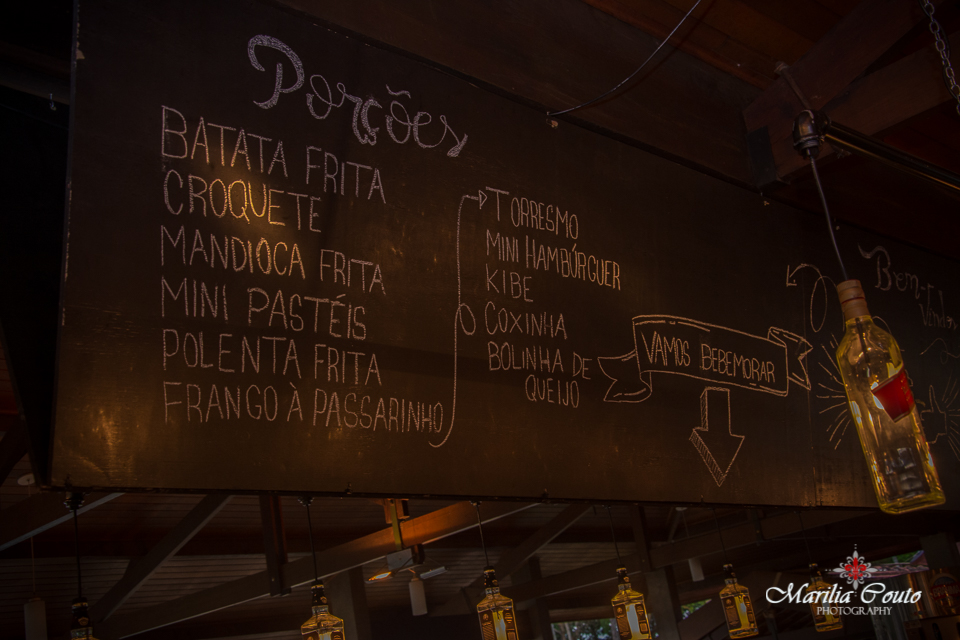 Porções
BATATA FRITA
CROQUETE
MANDIOCA FRITA
MINI PASTÉIS
POLENTA FRITA
FRANGO À PASSARINHO
TORRESMO
MINI HAMBÚRGUER
KIBE
COXINHA
BOLINHA DE
QUEIJO
VAMOS BEBEMORAR
Bem-
Marilia Couto
PHOTOGRAPHY